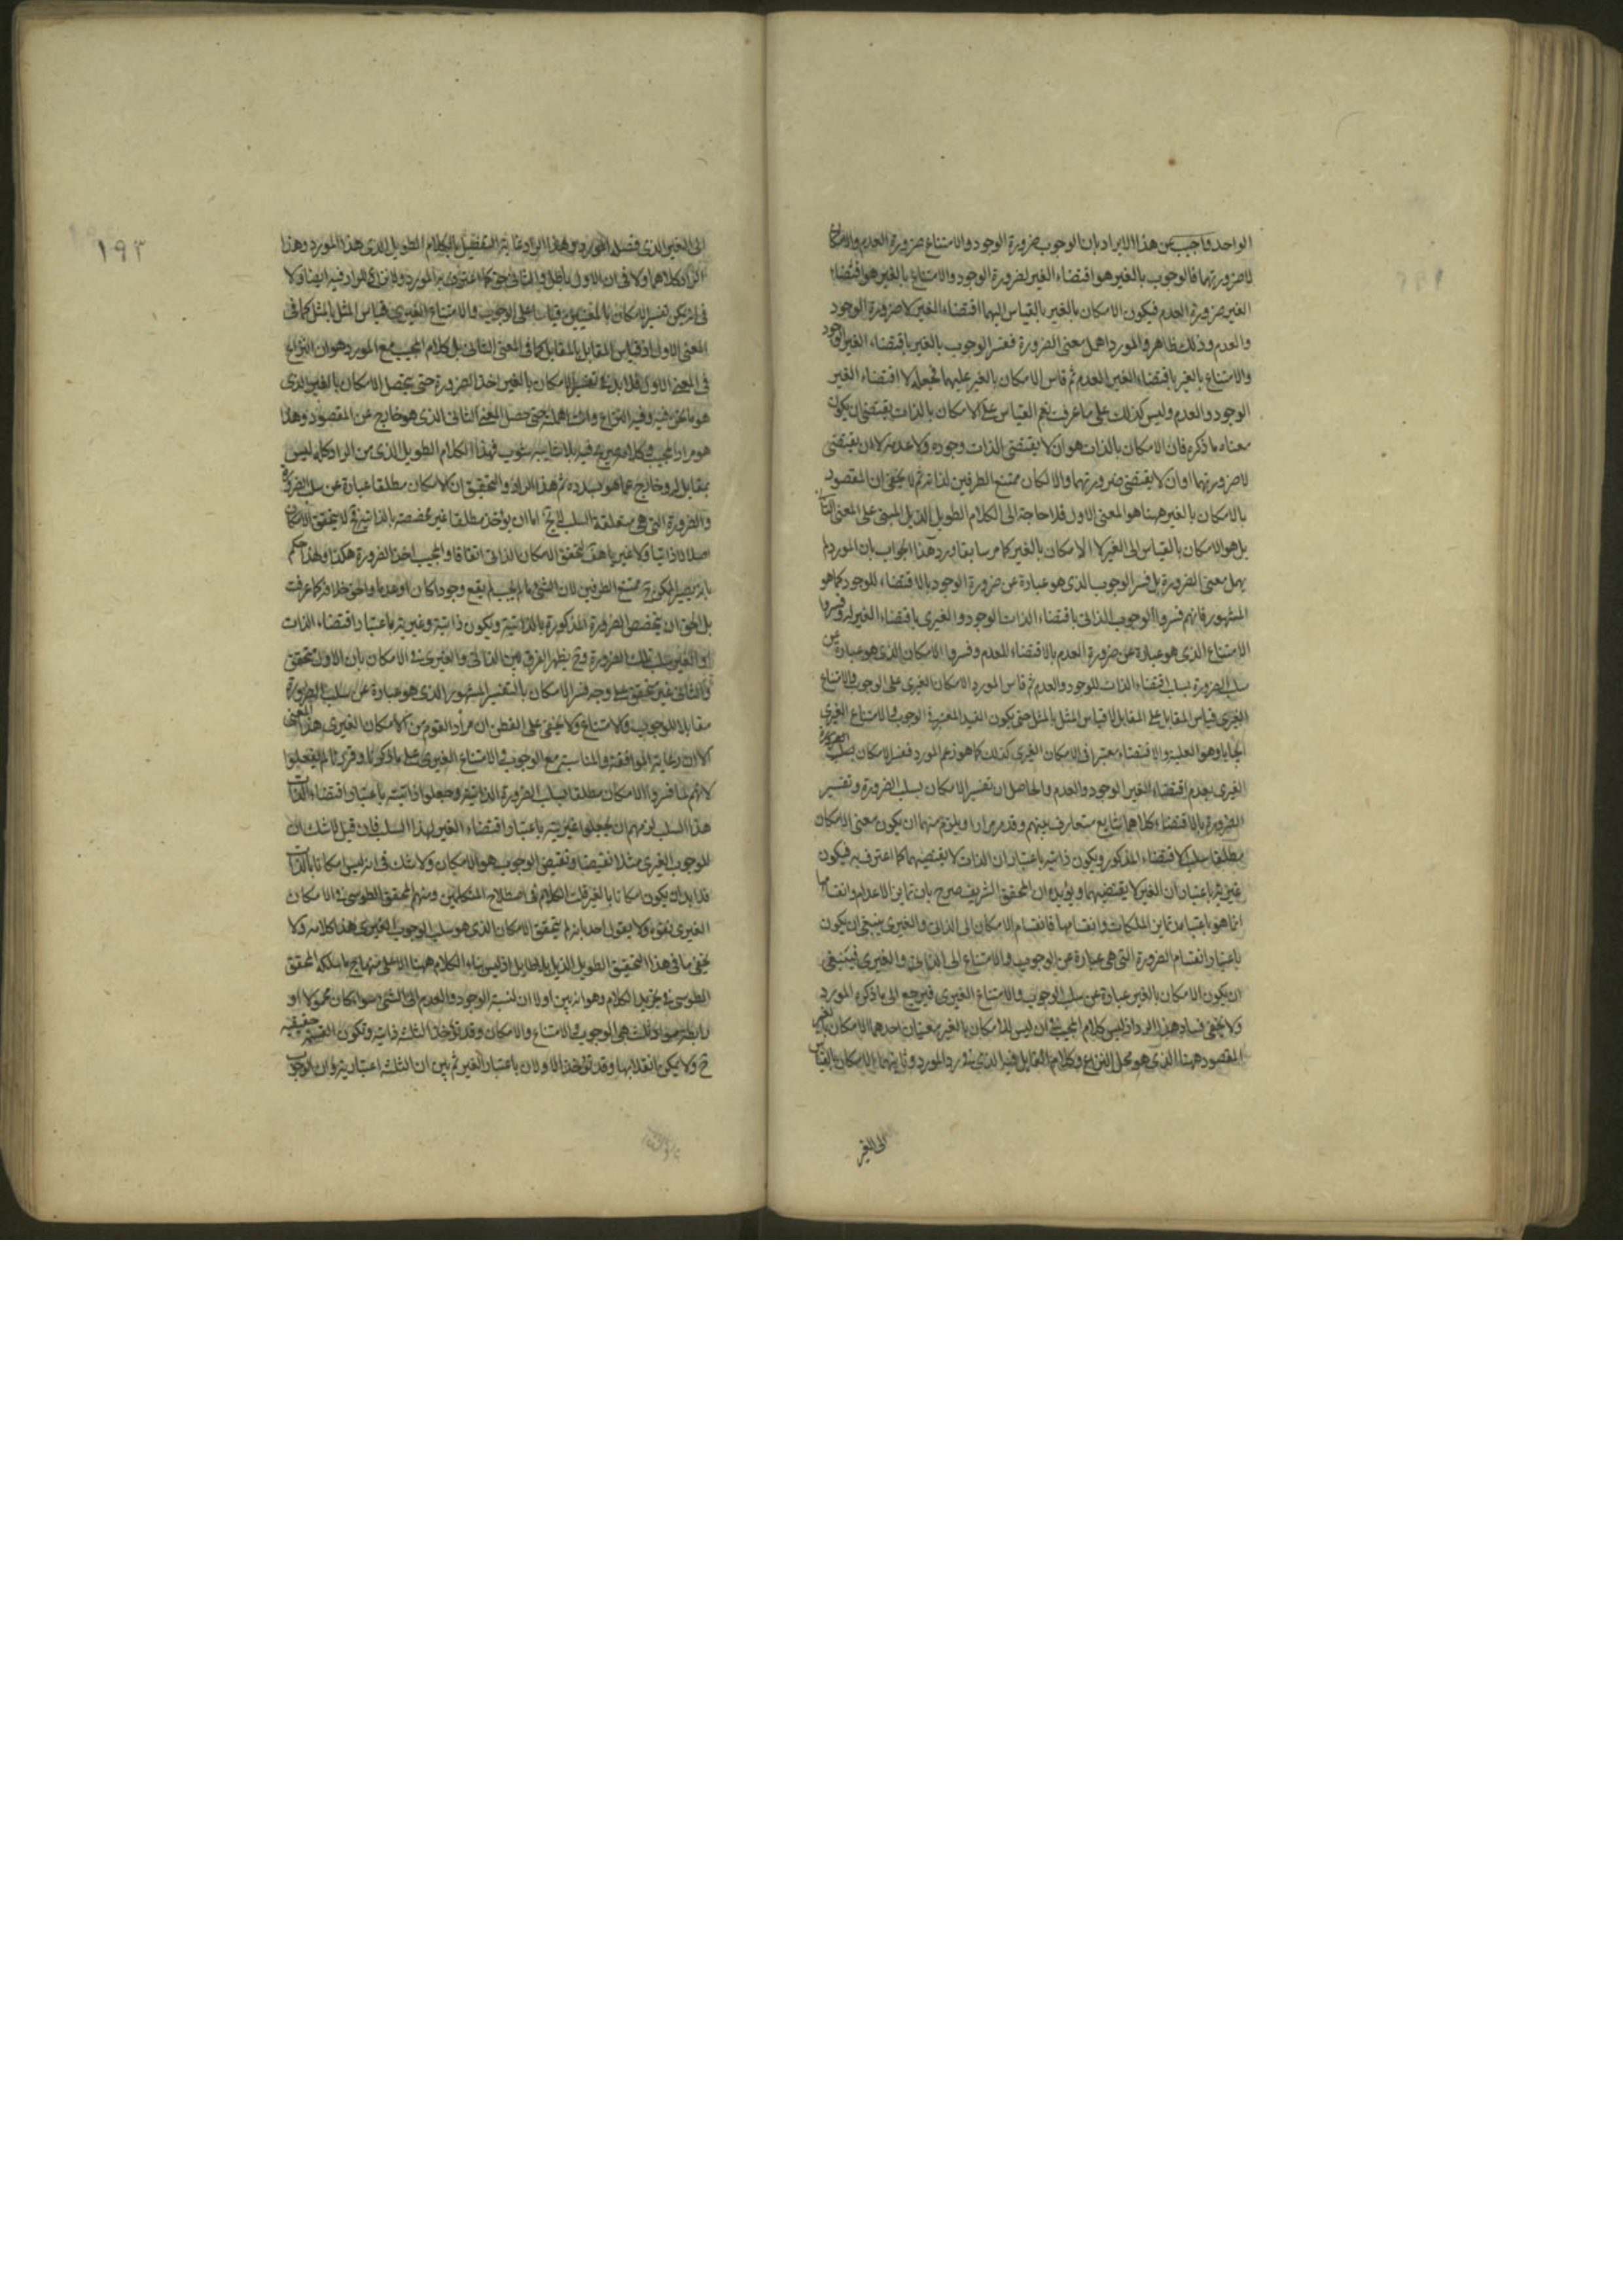 الواحد واجيب عن هذا الايراد بان الوجوب ضرورة الوجود والامتناع ضرورة العدم والامكان
لاضرورتهما فالوجوب بالغير هو اقتضاء الغير لضرورة الوجود والامتناع بالغير هو اقتضاء
الغير ضرورة العدم فيكون الامكان بالغير بالقياس اليهما اقتضاء الغير لاضرورة الوجود
والعدم وذلك ظاهر والمورد اهمل معنى الضرورة ففسر الوجوب بالغير باقتضاء الغير الوجود
والامتناع بالغير باقتضاء الغير العدم ثم قاس الامكان بالغير عليهما فجعله لا اقتضاء الغير
الوجود والعدم وليس كذلك على ما عرفت نعم القياس على الامكان بالذات يقتضى ان يكون
معناه ما ذكره فان الامكان بالذات هو ان لا يقتضى الذات وجوده ولا عدمه لا ان يقتضى
لاضرورتهما او ان لا يقتضى ضرورتهما والا لكان ممتنع الطرفين لذاته ثم لا يخفى ان المقصود
بالامكان بالغير ههنا هو المعنى الاول فلا حاجة الى الكلام الطويل الذيل المبنى على المعنى الثانى
بل هو الامكان بالقياس الى الغير لا الامكان بالغير كما مر سابقا ورد هذا الجواب بان المورد لم
يهمل معنى الضرورة بل فسر الوجوب الذى هو عبارة عن ضرورة الوجود بالاقتضاء للوجود كما هو
المشهور فانهم فسروا الوجوب الذاتى باقتضاء الذات الوجود والغيرى باقتضاء الغير له وفسروا
الامتناع الذى هو عبارة عن ضرورة العدم بالاقتضاء للعدم وفسروا الامكان الذى هو عبارة عن
سلب الضرورة بسلب اقتضاء الذات للوجود والعدم ثم قاس المورد الامكان الغيرى على الوجوب والامتناع
الغيرى قياس المقابل على المقابل لا قياس المثل بالمثل حتى يكون القيد المعتبر فى الوجوب والامتناع الغيرى
ايجابا وهو العلية والاقتضاء معتبرا فى الامكان الغيرى كذلك كما هو زعم المورد ففسر الامكان بسلب الضرورة
الغيرى بعدم اقتضاء الغير الوجود والعدم والحاصل ان تفسير الامكان بسلب الضرورة وتفسير
الضرورة بالاقتضاء كلاهما شايع متعارف بينهم وقد مر مرارا ويلزم منهما ان يكون معنى الامكان
مطلقا سلب الاقتضاء المذكور ويكون ذاتيه باعتبار ان الذات لا يقتضيهما كما اعترف به فيكون
غيريته باعتبار ان الغير لا يقتضيهما ويؤيده ان المحقق الشريف صرح بان تمايز الاعدام وانقسامها
انما هو باعتبار تمايز الملكات وانقسامها فانقسام الامكان الى الذاتى والغيرى ينبغى ان يكون
باعتبار انقسام الضرورة التى هى عبارة عن الوجوب والامتناع الى الذاتى والغيرى فينبغى
ان يكون الامكان بالغير عبارة عن سلب الوجوب والامتناع الغيرى فيرجع الى ما ذكره المورد
ولا يخفى فساد هذا الرد اذ ليس كلام المجيب فى ان ليس للامكان بالغير معنيان احدهما الامكان بالغير
المقصود ههنا الذى هو محل النزاع وكلام القايل فيه الذى فى رد المورد وثانيهما الامكان بالقياس
الى الغير
١٩٣
الى الغير الذى
الاول
فى تفسير الامكان بالغير قياسا على الوجوب والامتناع الغيرى قياس المثل بالمثل كما فى
المعنى الاول او قياس المقابل بالمقابل كما فى المعنى الثانى بل كلام المجيب مع المورد هو ان النزاع
فى المعنى الاول فلا بد فى تفسير الامكان بالغير اخذ الضرورة حتى يحصل الامكان بالغير الذى
حتى حصل المعنى الثانى الذى هو خارج عن المقصود وهذا
هو مراد المجيب وكلامه صريح فيه بلا شايبة شوب فهذا الكلام الطويل الذى من الراد كله ليس
بمقابل له وخارج عما هو بصدده ثم هذا الراد والتحقيق ان الامكان مطلقا عبارة عن سلب الضرورة
والضرورة التى هى متعلقة السلب اما ان يؤخذ مطلقا غير مخصصة بالذاتية فح لا يتحقق الامكان
اصلا لا ذاتيا ولا غيريا هف لتحقق الامكان الذاتى اتفاقا والمجيب اخذ الضرورة هكذا ولهذا حكم
بانه يصير الممكن ح ممتنع الطرفين لان الشئ ما لم يجب لم يقع وجودا كان او عدما والحق خلافه كما عرفت
بل الحق ان يخصص الضرورة المذكورة بالذاتية ويكون ذاتيته وغيريته باعتبار اقتضاء الذات
او الغير سلب تلك الضرورة وح يظهر الفرق بين الذاتى والغيرى فى الامكان بان الاول متحقق
والثانى غير متحقق على وجه فسر الامكان بالتفسير المشهور الذى هو عبارة عن سلب الضرورة
مقابلا للوجوب والامتناع ولا يخفى على الفطن ان مراد القوم من الامكان الغيرى هذا المعنى
الا ان رعاية الموافقة والمناسبة مع الوجوب والامتناع الغيرى على ما ذكرنا وقررنا لم يفعلوا
لانهم لما فسروا الامكان مطلقا بسلب الضرورة الذاتية وجعلوا ذاتيته باعتبار اقتضاء الذات
هذا السلب لزمهم ان يجعلوا غيريته باعتبار اقتضاء الغير لهذا السلب فان قيل لا شك ان
للوجوب الغيرى مثلا نقيضا ونقيض الوجوب هو الامكان ولا شك فى انه ليس امكانا بالذات
فلا بد ان يكون امكانا بالغير قلت الكلام فى اصطلاح المتكلمين ومنهم المحقق الطوسى فى الامكان
الغيرى نفوه ولا يقول احد بانه لم يتحقق الامكان الذى هو سلب الوجوب الغيرى هذا كلامه ولا
يخفى ما فى هذا التحقيق الطويل الذيل بلا طايل اذ ليس بناء الكلام ههنا الا على منهاج ما سلكه المحقق
الطوسى فى تجريد الكلام وهو انه بين اولا ان لنسبة الوجود والعدم الى الشئ سواء كان محمولا او
رابطة مواد ثلث هى الوجوب والامتناع والامكان وقد تؤخذ الثلث ذاتية وتكون القسمة حقيقية
ح ولا يمكن انقلابها وقد تؤخذ الاولان باعتبار الغير ثم بين ان الثلثة اعتبارية وان الوجوب